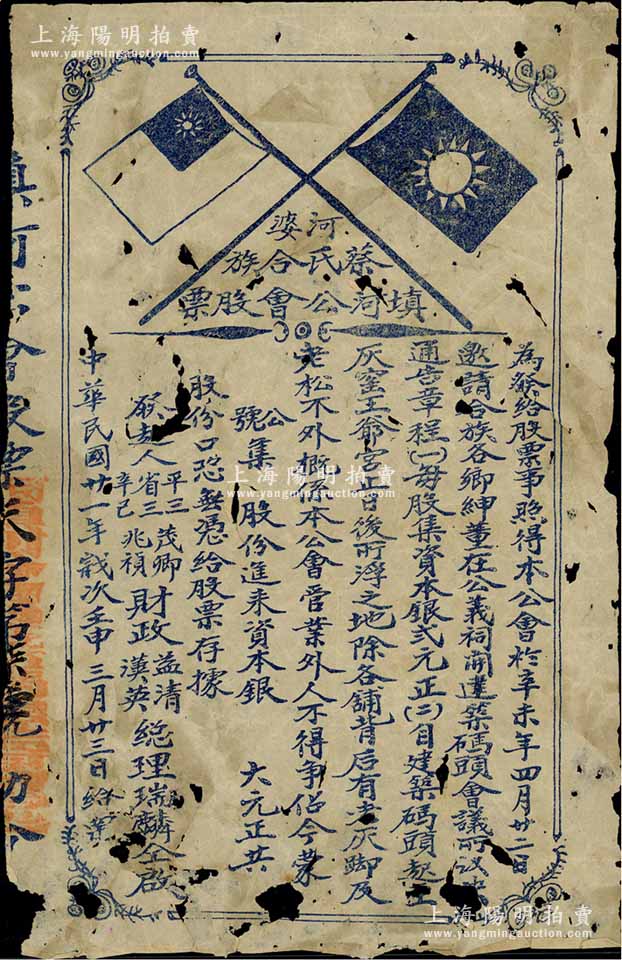 上海陽明拍賣
www.yangmingauction.com
河婆
蔡氏合族
填河公會股票
為發給股票事照得本公會於辛未年四月廿二日
邀請合族各鄉紳董在公義祠開建築碼頭會議所議決
通告章程(一)每股集資本銀弍元正(二)自建築碼頭起至
灰窰王爺宮止日後所浮之地除各舖背后有老灰脚及
老松不外概本公會管業外人不得爭佔今蒙
公號集 股份進來資本銀 大元正共
股份口恐無憑給股票存據
發起人 平三 省三 辛己 茂卿 兆禎 財政 益清 漢英 總理 瑞麟 仝啟
中華民國廿一年歲次壬申三月廿三日給發
填河公會股票天字第 號
上海陽明拍賣
www.yangmingauction.com
上海陽明拍賣
www.yangmingauction.com